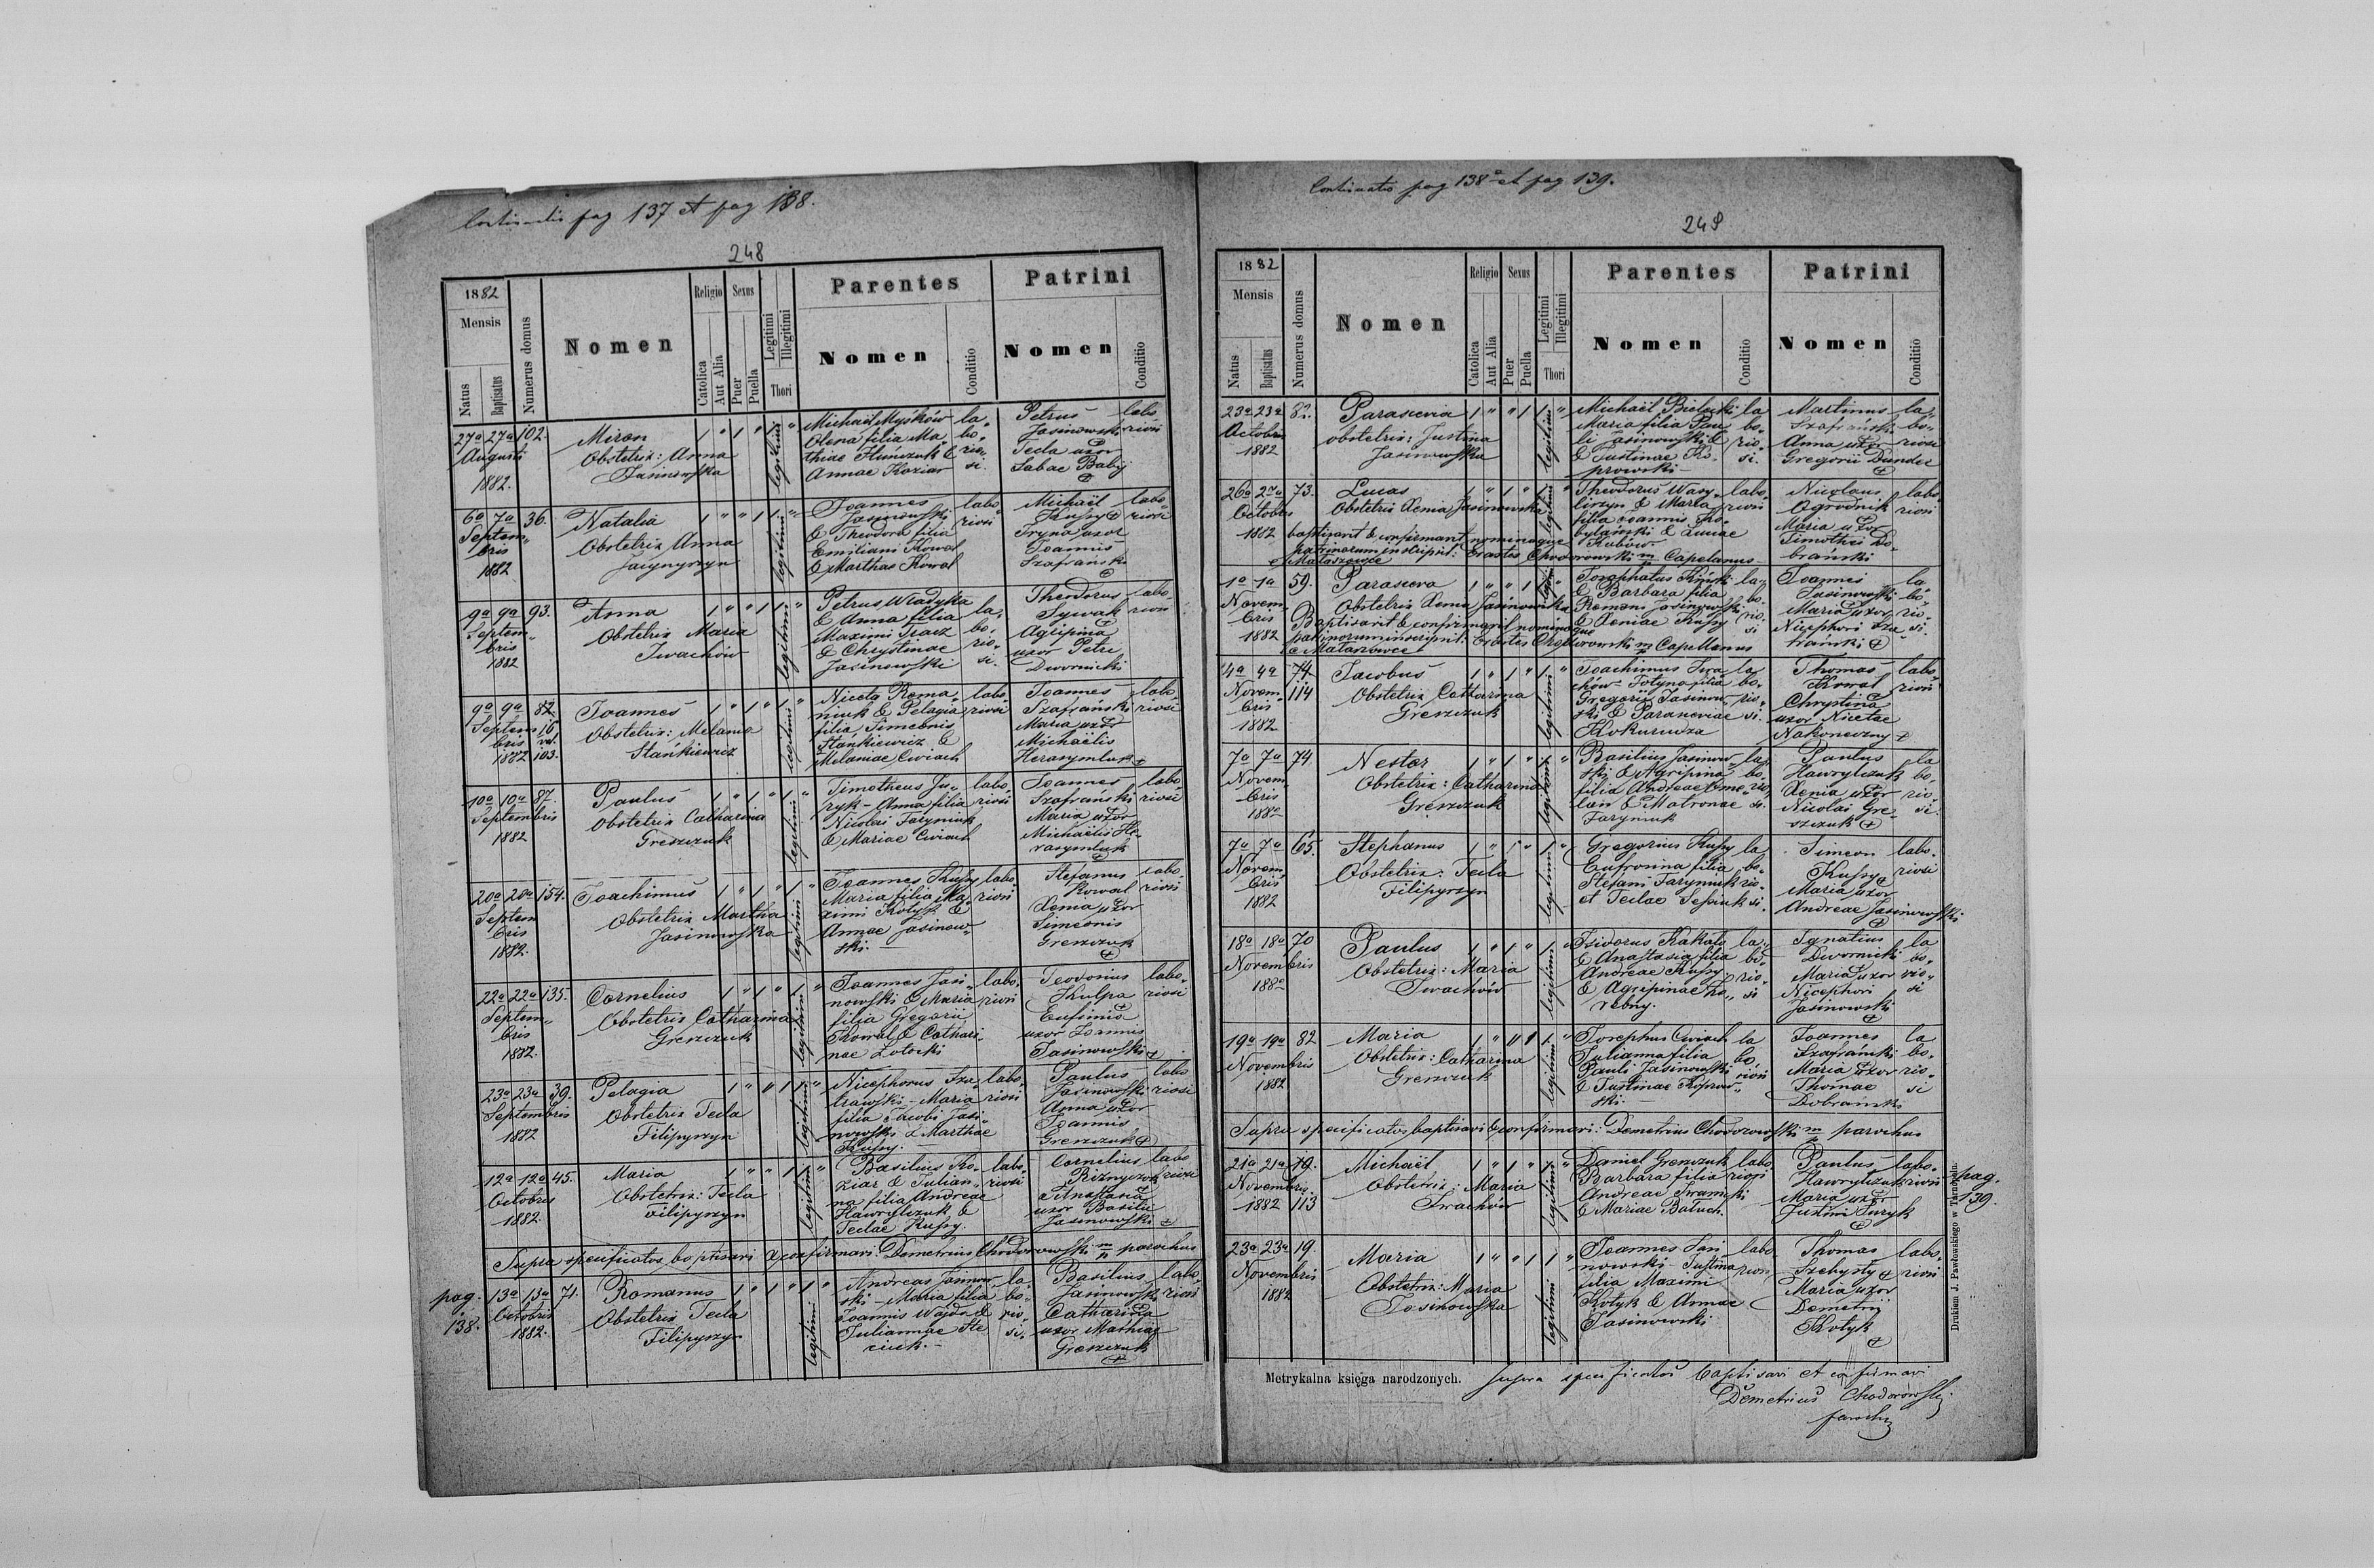 Continuatio pag 137 et pag 138.
248
1882
Mensis
Natus
Baptisatus
Numerus domus
Nomen
Religio
Catolica
Aut Alia
Sexus
Puer
Puella
Legitimi
Illegitimi
Thori
Parentes
Nomen
Conditio
Patrini
Nomen
Conditio
27a 27a 102.
Augusti
1882.
Miron
Obstetrix: Anna
Jasinowska
legitimi
Michaël Myśków
Olena filia Ma-
thiae Humczuk &
Annae Koziar
la-
bo-
rio-
si.
Petrus
Jasinowski
Tecla uxor
Sabae Babij
labo
riosi
6a 7a 36.
Septem-
bris
1882
Natalia
Obstetrix Anna
legitimi
Joannes
Jasinowski
& Theodora filia
Emiliani Kowal
& Marthae Kowal
labo-
riosi
Michaël
Kuszy
Iryna uxor
Joannis
Szafranski
labo
riosi
9a 9a 93.
Septem-
bris
1882
Anna
Obstetrix Maria
Iwachów
legitimi
Petrus Wladyka
& Anna filia
Maximi Tracz
& Chrystinae
Jasinowski
la-
bo-
rio-
si.
Theodorus
Sywak
Agripina
uxor Petri
Dwornicki
labo
riosi
9a 9a 82.
Septem-
bris
1882 103.
Joannes
Obstetrix: Melania
Stańkiewicz
legitimi
Niceta Roma-
niuk & Pelagia
filia Simeonis
Stańkiewicz &
Melaniae Cwiach
labo-
riosi
Joannes
Szafrański
Maria uxor
Michaëlis
Herasymluk
labo-
riosi
10a 10a 87.
Septembris
1882
Paulus
Obstetrix Catharina
Greszczuk
legitimi
Timotheus Ju-
ryk - Anna filia
Nicolai Faryniuk
& Mariae Cwiach
labo-
riosi
Joannes
Szafrański
Maria uxor
Michaëlis He-
rasymluk
labo-
riosi
20a 20a 154.
Septem
bris
1882.
Joachimus
Obstetrix Martha
Jasinowska
legitimi
Joannes Kuszy
Maria filia Ma-
ximi Kotyk &
Annae Jasinow-
ski.
labo-
riosi
Stefanus
Kowal
Xenia uxor
Simeonis
Greszczuk
labo
riosi
22a 22a 135.
Septem-
bris
1882.
Cornelius
Obstetrix Catharina
Greszczuk
legitimi
Joannes Jasi-
nowski & Maria
filia Gregorii
Kowal & Cathari-
nae Zotocki
labo-
riosi
Teodosius
Kulpa
Eufimia
uxor Joannis
Jasinowski
labo-
riosi
23a 23a 39.
Septembris
1882
Pelagia
Obstetrix Tecla
Filipyszyn
legitimi
Nicephorus Sza-
trawski - Maria
filia Jacobi Jasi-
nowski & Marthae
Kuszy.
labo-
riosi
Paulus
Jasinowski
Anna uxor
Joannis
Greszczuk
labo
riosi
12a 12a 45.
Octobris
1882.
Maria
Obstetrix: Tecla
Filipyszyn
legitimi
Basilius Ko-
ziar & Julian-
na filia Andreae
Hawrylczuk &
Teclae Kuszy.
labo-
riosi
Cornelius
Anastasia
uxor Basilii
Jasinowski
labo
riosi
Supra specificatos baptisavi & confirmavi: Demetrius Chodorowski mp parochus
pag.
138.
13a 13a 71.
Octobris
1882.
Romanus
Obstetrix Tecla
Filipyszyn
legitimi
Andreas Jasinow-
ski - Maria filia
Joannis Wajda &
Juliannae Ste-
ciuk.
la-
bo-
rio-
si.
Basilius
Jasinowski
Catharina
uxor Mathiae
Greszczuk
labo-
riosi
Continuatio pag 138 et pag 139.
249
1882
Mensis
Natus
Baptisatus
Numerus domus
Nomen
Religio
Catolica
Aut Alia
Sexus
Puer
Puella
Legitimi
Illegitimi
Thori
Parentes
Nomen
Conditio
Patrini
Nomen
Conditio
23a 23a 82.
Octobris
1882
Parascevia
obstetrix: Justina
Jasinowska
legitimi
Michaël Bielecki
Maria filia Pau-
li Jasinowski &
& Justinae Ko-
prowski
la-
bo-
rio-
si.
Martinus
Szafrański
Anna uxor
Gregorii Dunder
la-
bo-
riosi
26a 27a 73.
Octobris
1882
Lucas
Obstetrix Xenia Jasinowska
legitimi
Theodorus Wasy-
liszyn & Marta
filia Joannis Ko-
bylański & Annae
labo-
riosi
Nicolaus
Ogrodnik
Maria uxor
Timothei Do-
brański
labo-
riosi
baptisavit & confirmavit nominaque
patrinorum inscripsit: Erastes Chodorowski mp Capelanus
e Mataszowce
1a 1a 59.
Novem-
bris
1882
Parasceva
Obstetrix Xenia Jasinowska
Josaphatus Kiński
& Barbara filia
Romani Jasinowski
& Xeniae Kuszy
la-
bo-
rio-
si
Joannes
Jasinowski
Maria uxor
Nicephori Sza-
trański
la-
bo-
rio-
si.
Baptisavit & confirmavit nominaque
patrinorum inscripsit: Erastes Chodorowski mp Capellanus
e Mataszowce
4a 4a 74.
Novem- 114
bris
1882
Jacobus
Obstetrix Catharina
Greszczuk
legitimi
Joachimus Iwa-
chów - Fotyna filia
Gregorii Jasinow-
ski & Parasceviae
Kokurudza
la
bo-
rio-
si.
Thomas
Kowal
Chrystina
uxor Nicetae
Nakoneczny
labo-
riosi
7a 7a 74
Novem-
bris
1882
Nestor
Obstetrix: Catharina
Greszczuk
legitimi
Basilius Jasinow-
ski & Agripina
filia Andreae Ome-
lan & Matronae
Faryniuk
la-
bo-
rio-
si.
Paulus
Hawrylczuk
Xenia uxor
Nicolai Gre-
szczuk
la
bo-
rio-
si.
7a 7a 65.
Novem-
bris
1882
Stephanus
Obstetrix: Tecla
Filipyszyn
legitimi
Gregorius Kuszy
Eufrosina filia
Stefani Faryniuk
et Teclae
la
bo-
rio-
si.
Simeon
Kuszy
Maria uxor
Andreae Jasinowski
labo-
riosi
18a 18a 70
Novembris
1882
Paulus
Obstetrix: Maria
Iwachów
legitimi
Isidorus Kakały
& Anastasia filia
Andreae Kuszy
& Agripinae Ko-
rebny.
la-
bo-
rio-
si
Ignatius
Dwornicki
Maria uxor
Nicephori
Jasinowski
la
bo-
rio-
si
19a 19a 82
Novembris
1882
Maria
Obstetrix: Catharina
Greszczuk
legitimi
Josephus Cwiach
Julianna filia
Pauli Jasinowski
& Justinae Koprow-
ski.
la
bo-
riosi
Joannes
Szafrański
Maria uxor
Thomae
Dobrański
la
bo-
rio-
si
Supra specificatos baptisavi & confirmavi: Demetrius Chodorowski mp parochus
21a 21a 19.
Novembris
1882 113
Michaël
Obstetrix: Maria
Iwachów
legitimi
Daniel Greszczuk
Barbara filia
Andreae Iwanicki
& Mariae Batuch.
labo
riosi
Paulus
Hawrylczuk
Maria uxor
Justini Juryk
labo-
riosi
pag.
139.
23a 23a 19.
Novembris
1882
Maria
Obstetrix: Maria
Jasinowska
legitimi
Joannes Jasi-
nowski - Justina
filia Maximi
Kotyk & Annae
Jasinowski
labo-
riosi
Thomas
Szchysty
Maria uxor
Demetrij
Kotyk
labo-
riosi
Drukiem J. Pawłowskiego w Tarnopolu.
Metrykalna księga narodzonych.
supra specificatos baptisavi et confirmavi
Demetrius Chodorowski
parochus